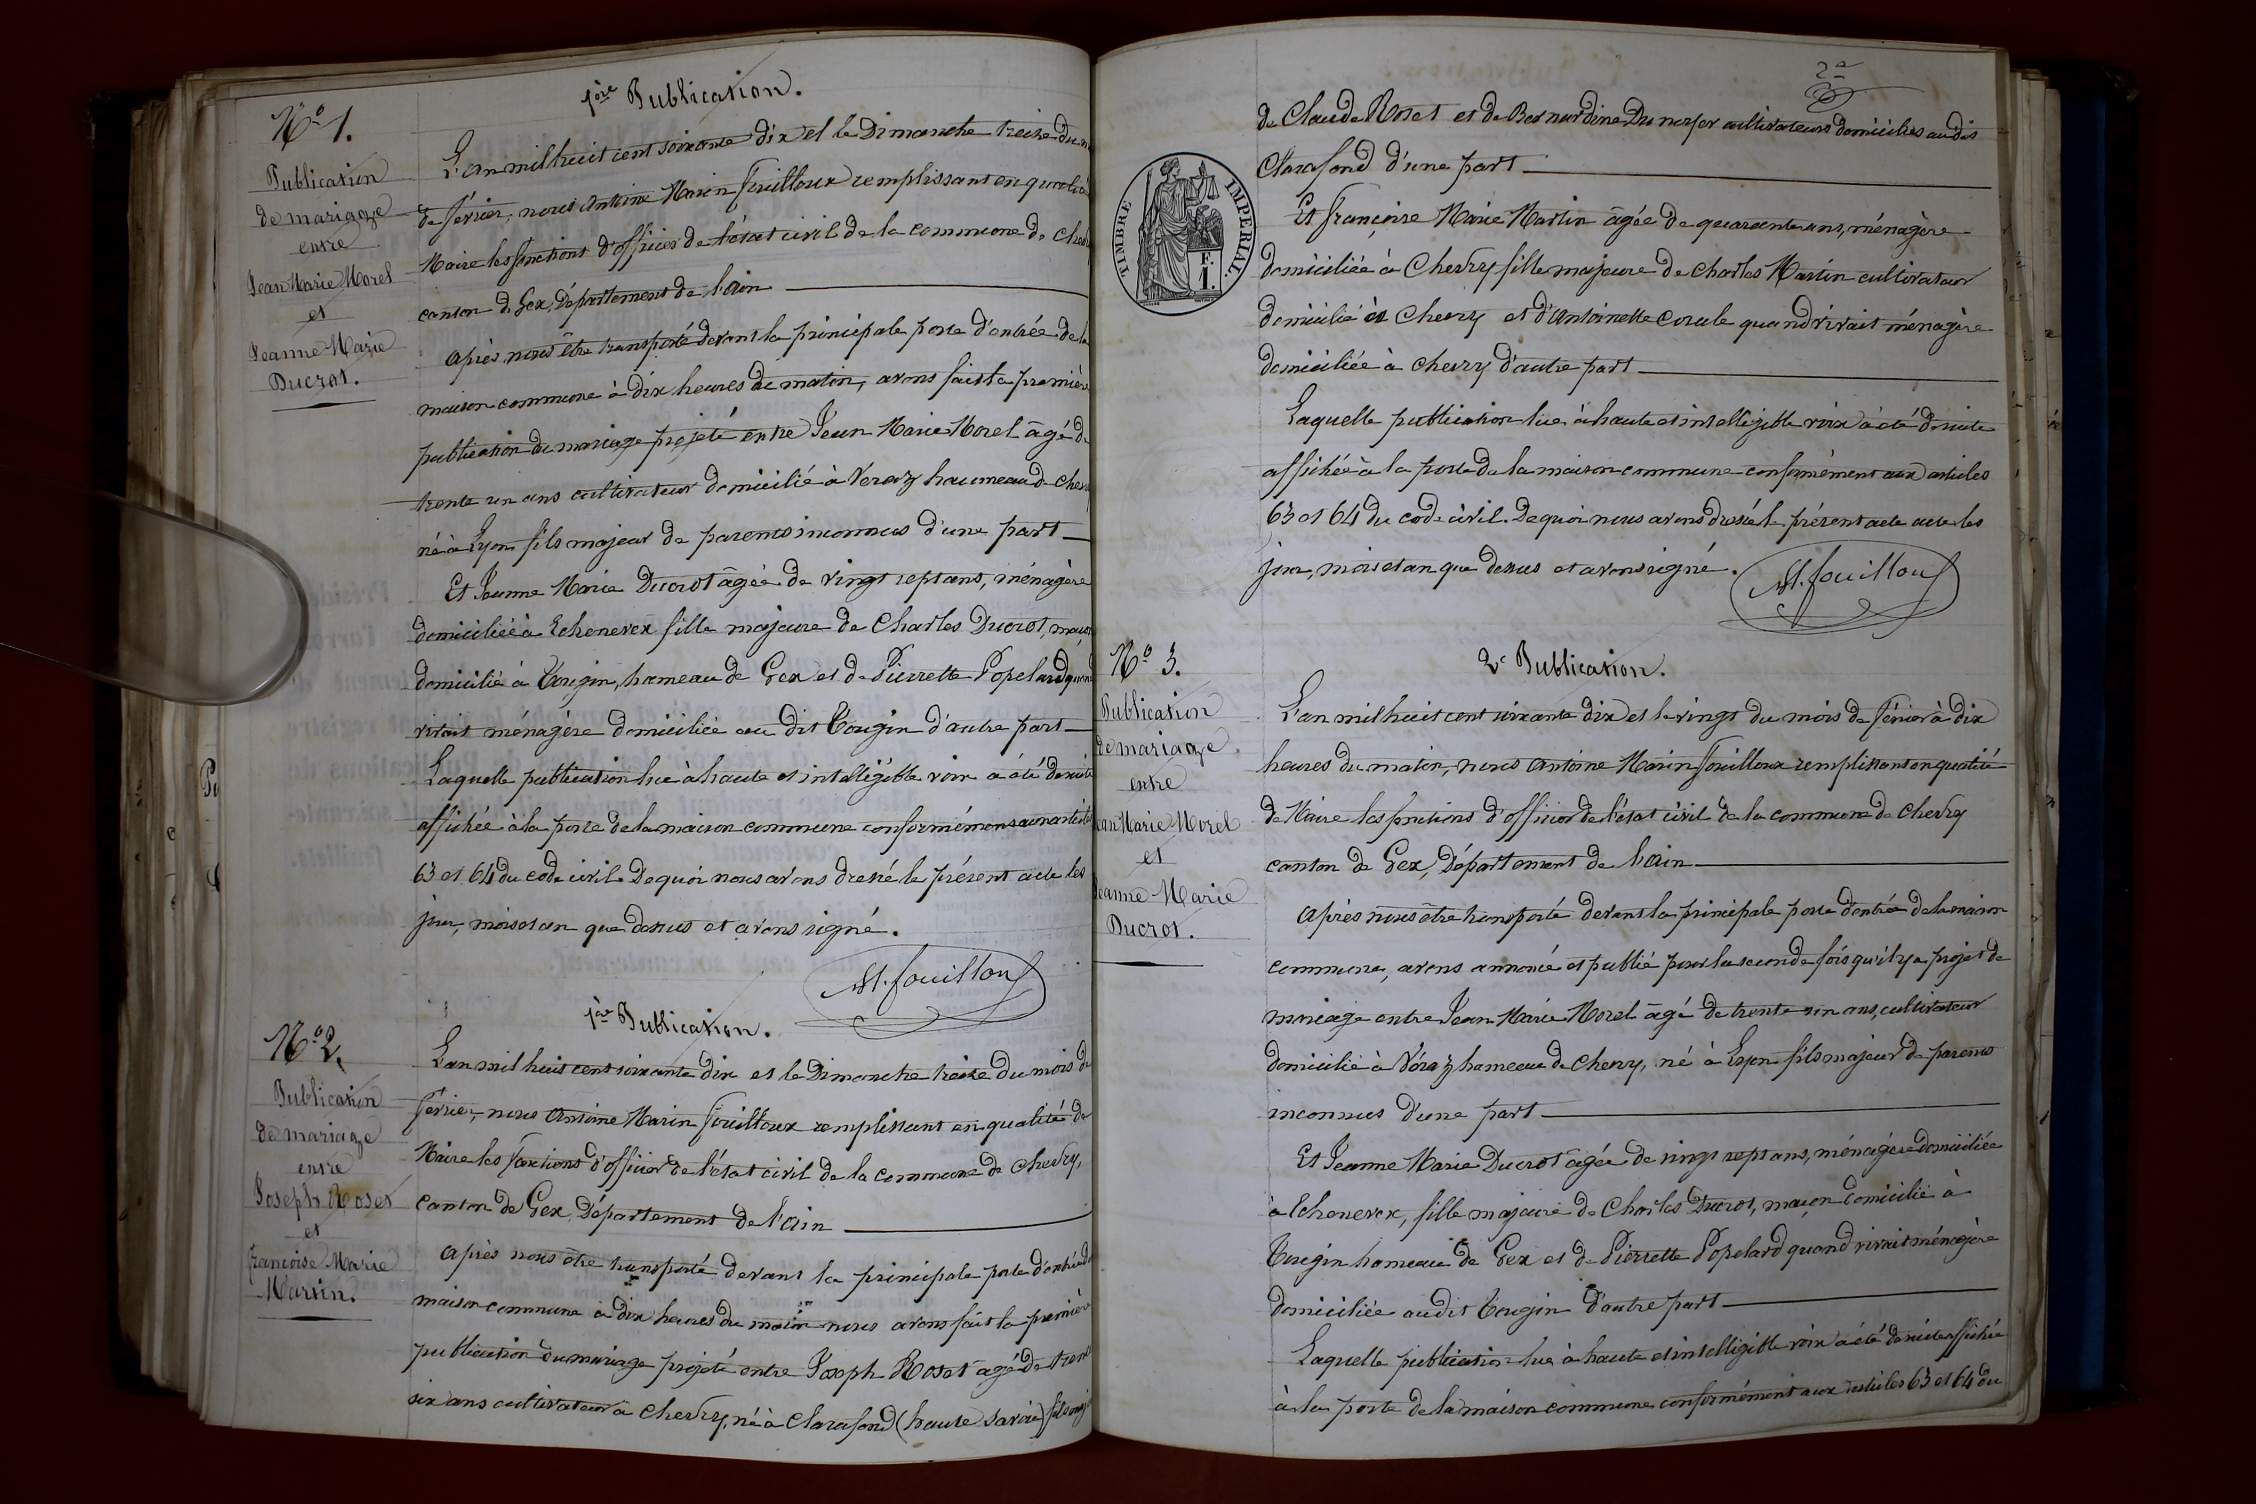 1ère Publication.
N° 1.
Publication
de mariage
entre
Jean Marie Morel
et
Jeanne Marie
Ducrot.
L'an mil huit cent soixante dix et le Dimanche treize du
de février, nous Antoine Marin Fouilloux remplissant en qualité
Maire les fonctions d'officier de l'état civil de la commune de
canton de Gex, Département de l'Ain
Après nous être transporté devant la principale porte d'entrée de la
maison commune à dix heures du matin, avons fait la première
publication du mariage projeté entre Jean Marie Morel âgé de
trente un ans cultivateur domicilié à Veraz haumeau de
né à Lyon fils majeur de parents inconnus d'une part
Et Jeanne Marie Ducrot âgée de vingt sept ans, ménagère
domiciliée à Echenevex fille majeure de Charles Ducrot, maçon
domicilié à Tougin, hameau de Gex et de Pierrette Popelard quand
vivait ménagère domiciliée au dit Tougin d'autre part
Laquelle publication lue à haute et intelligible voix a été de suite
affichée à la porte de la maison commune conformément aux articles
63 et 64 du code civil. De quoi nous avons dressé le présent acte les
jour, mois et an que dessus et avons signé.
M. fouilloux
1ère Publication.
N° 2.
Publication
de mariage
entre
Joseph Roset
et
françoise Marie
Martin.
L'an mil huit cent soixante dix et le Dimanche treize du mois de
février, nous Antoine Marin Fouilloux remplissant en qualité de
Maire les fonctions d'officier de l'état civil de la commune de Chevry,
canton de Gex, Département de l'Ain
Après nous être transporté devant la principale porte d'entrée de
maison commune à dix heures du matin nous avons fait la première
publication du mariage projeté entre Joseph Roset âgé de trente
six ans cultivateur à Chevry, né à Clarafond (haute Savoie) fils
2e
de Claude Roset et de Bernardine cultivateurs domiciliés au dit
Clarafond d'une part
TIMBRE IMPERIAL.
F.
1.
Et françoise Marie Martin âgée de quarante ans, ménagère
domiciliée à Chevry fille majeure de Charles Martin cultivateur
domicilié à Chevry et d'Antoinette quand vivait ménagère
domiciliée à Chevry d'autre part
Laquelle publication lue à haute et intelligible voix a été de suite
affichée à la porte de la maison commune conformément aux articles
63 et 64 du code civil. De quoi nous avons dressé le présent acte acte les
jour, mois et an que dessus et avons signé.
M. fouilloux
2e Publication.
N° 3.
Publication
de mariage
entre
Jean Marie Morel
et
Jeanne Marie
Ducrot.
L'an mil huit cent soixante dix et le vingt du mois de février à dix
heures du matin, nous Antoine Marin Fouilloux remplissant en qualité
de Maire les fonctions d'officier de l'état civil de la commune de Chevry
canton de Gex, Département de l'Ain
Après nous être transporté devant la principale porte d'entrée de la maison
commune, avons annoncé et publié pour la seconde fois qu'il y a projet de
mariage entre Jean Marie Morel âgé de trente un ans, cultivateur
domicilié à Véraz hameau de Chevry, né à Lyon fils majeur de parents
inconnus d'une part
Et Jeanne Marie Ducrot âgée de vingt sept ans, ménagère domiciliée
à Echenevex, fille majeure de Charles Ducrot, maçon domicilié à
Tougin hameau de Gex et de Pierrette Popelard quand vivait ménagère
domiciliée au dit Tougin d'autre part
Laquelle publication lue à haute et intelligible voix a été de suite affichée
à la porte de la maison commune conformément aux articles 63 et 64 du